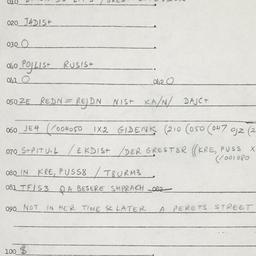 020 JADIST
030 O
040 POJLIST RUSIST
041 O 042 O
050 ZE REDN = REJDN NIST KA/N/ DAJCT
060 JE4 (/004050 1X2 GIDENK (210 (050 (047
070 STPITUL / EKDIST /DER GRESTER ((KRE, PUSS X
(/001080
080 IN KRE, PUSS8 / TSURM3
081 TF/S3 A BESERE SHPRACH 082
090 NOT IN HER TIME & LATER A PERETS STREET
100 $